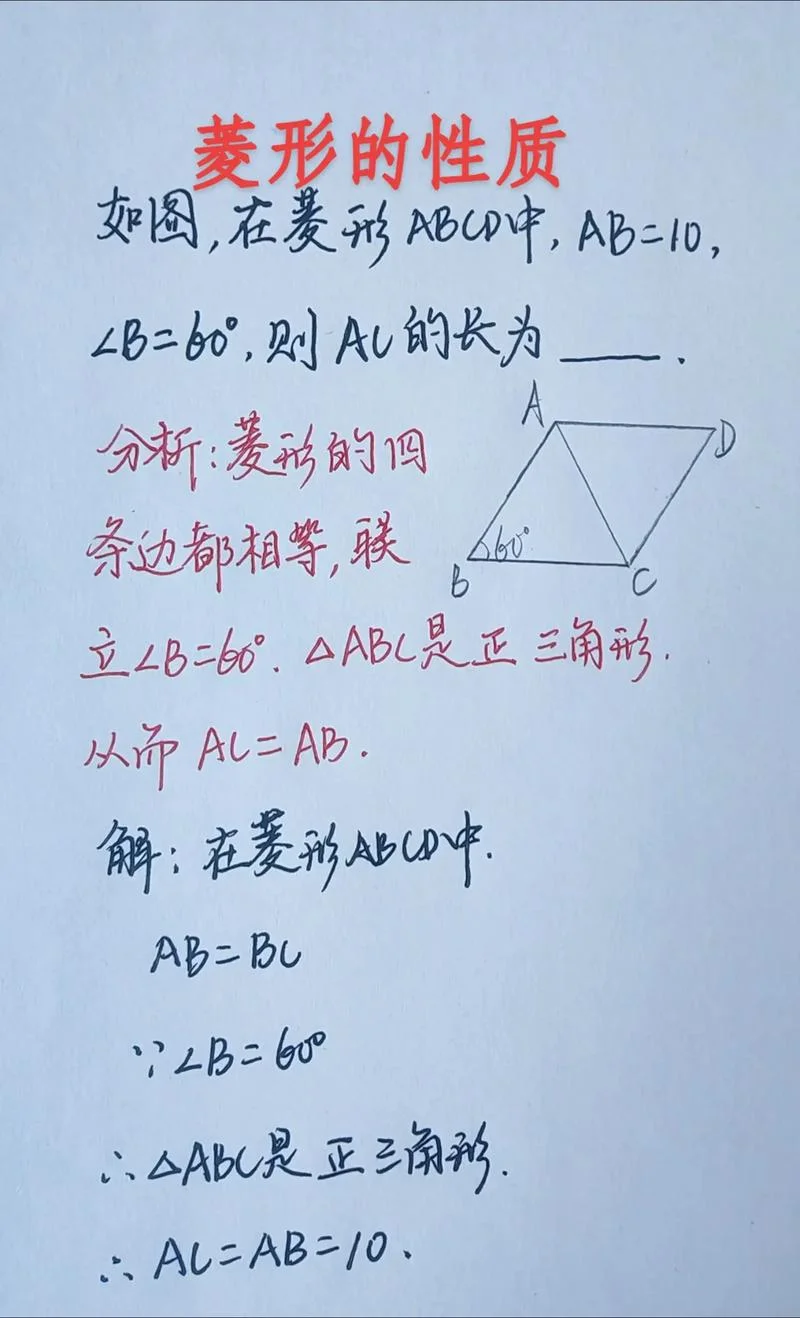 菱形的性质
如图,在菱形ABCD中,AB=10,
∠B=60°,则AC的长为____.
分析:菱形的四
条边都相等,联
立∠B=60°.△ABC是正三角形.
从而AC=AB.
A
D
60°
B
C
解:在菱形ABCD中.
AB=BC
∵∠B=60°
∴△ABC是正三角形.
∴AC=AB=10.